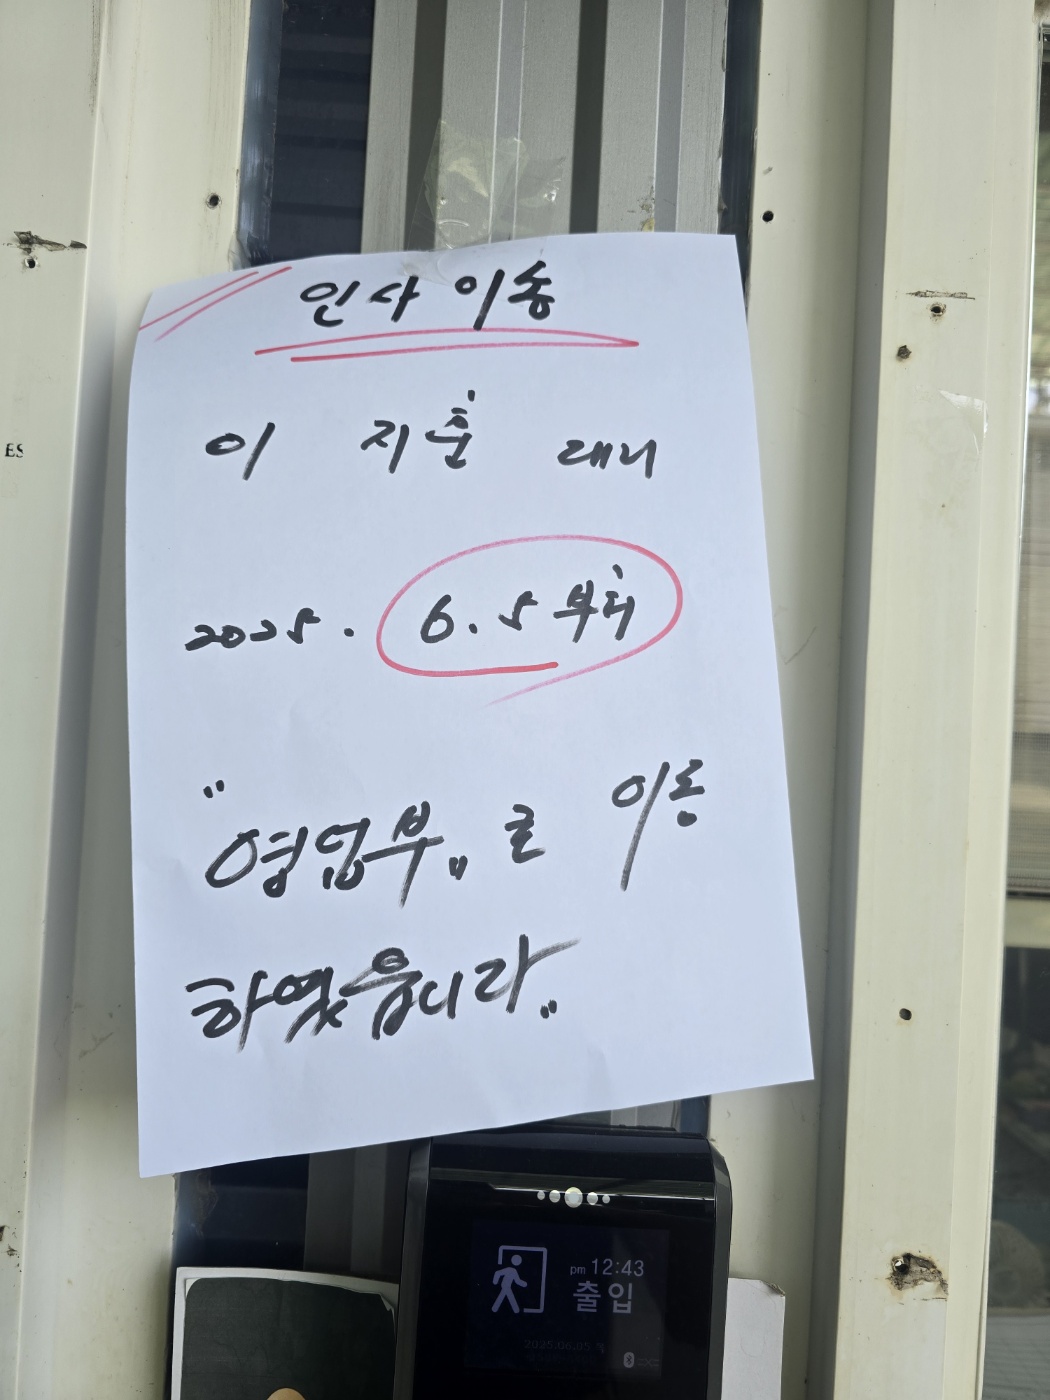 인사이송
이 지훈 대리
2025. 6. 5 부터
"영업부" 로 이동
하였읍니다.
ES
pm 12:43
출입
2025.06.05